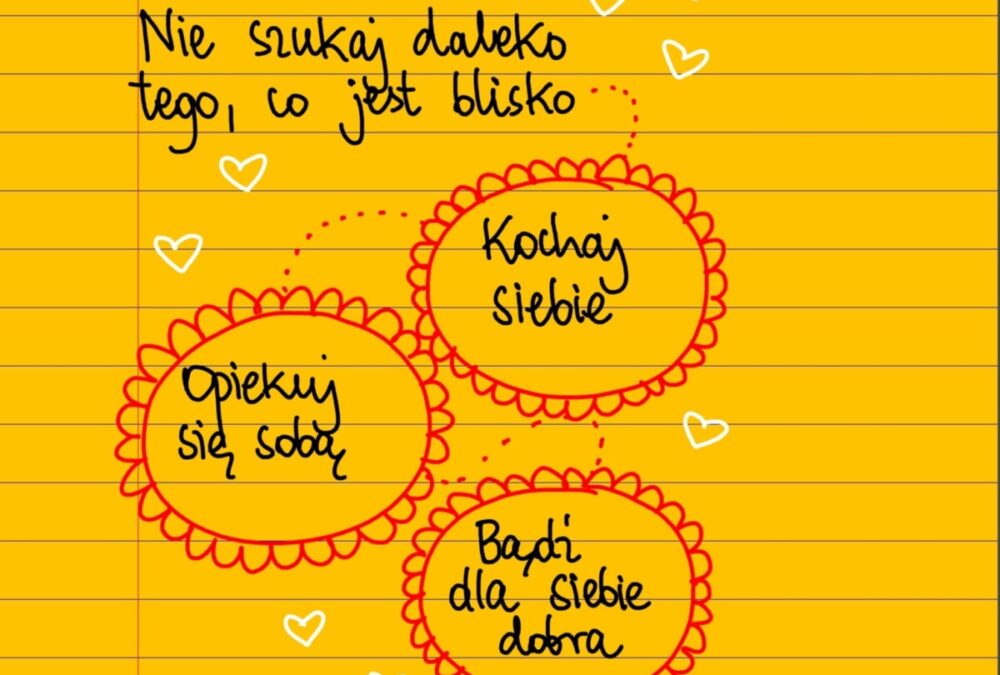 Nie szukaj daleko
tego, co jest blisko
Kochaj
siebie
Opiekuj
się sobą
Bądź
dla siebie
dobra